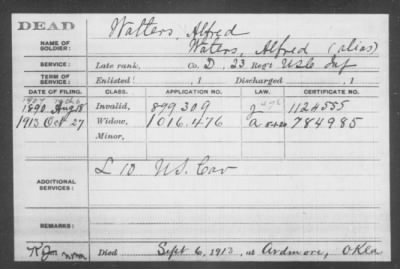 DEAD
Walters, Alfred
NAME OF SOLDIER: Waters, Alfred (alias)
SERVICE: Late rank, Co. D, 23 Reg't USC Inf
TERM OF SERVICE: Enlisted , 1 Discharged , 1
DATE OF FILING. CLASS. APPLICATION NO. LAW. CERTIFICATE NO.
1890 Aug 18 Invalid, 899.309 1124555
1913 Oct 27 Widow, 1016.476 784985
Minor,
ADDITIONAL SERVICES: L 10 U.S. Cav
REMARKS:
Died Sept 6, 1913, at Ardmore, Okla